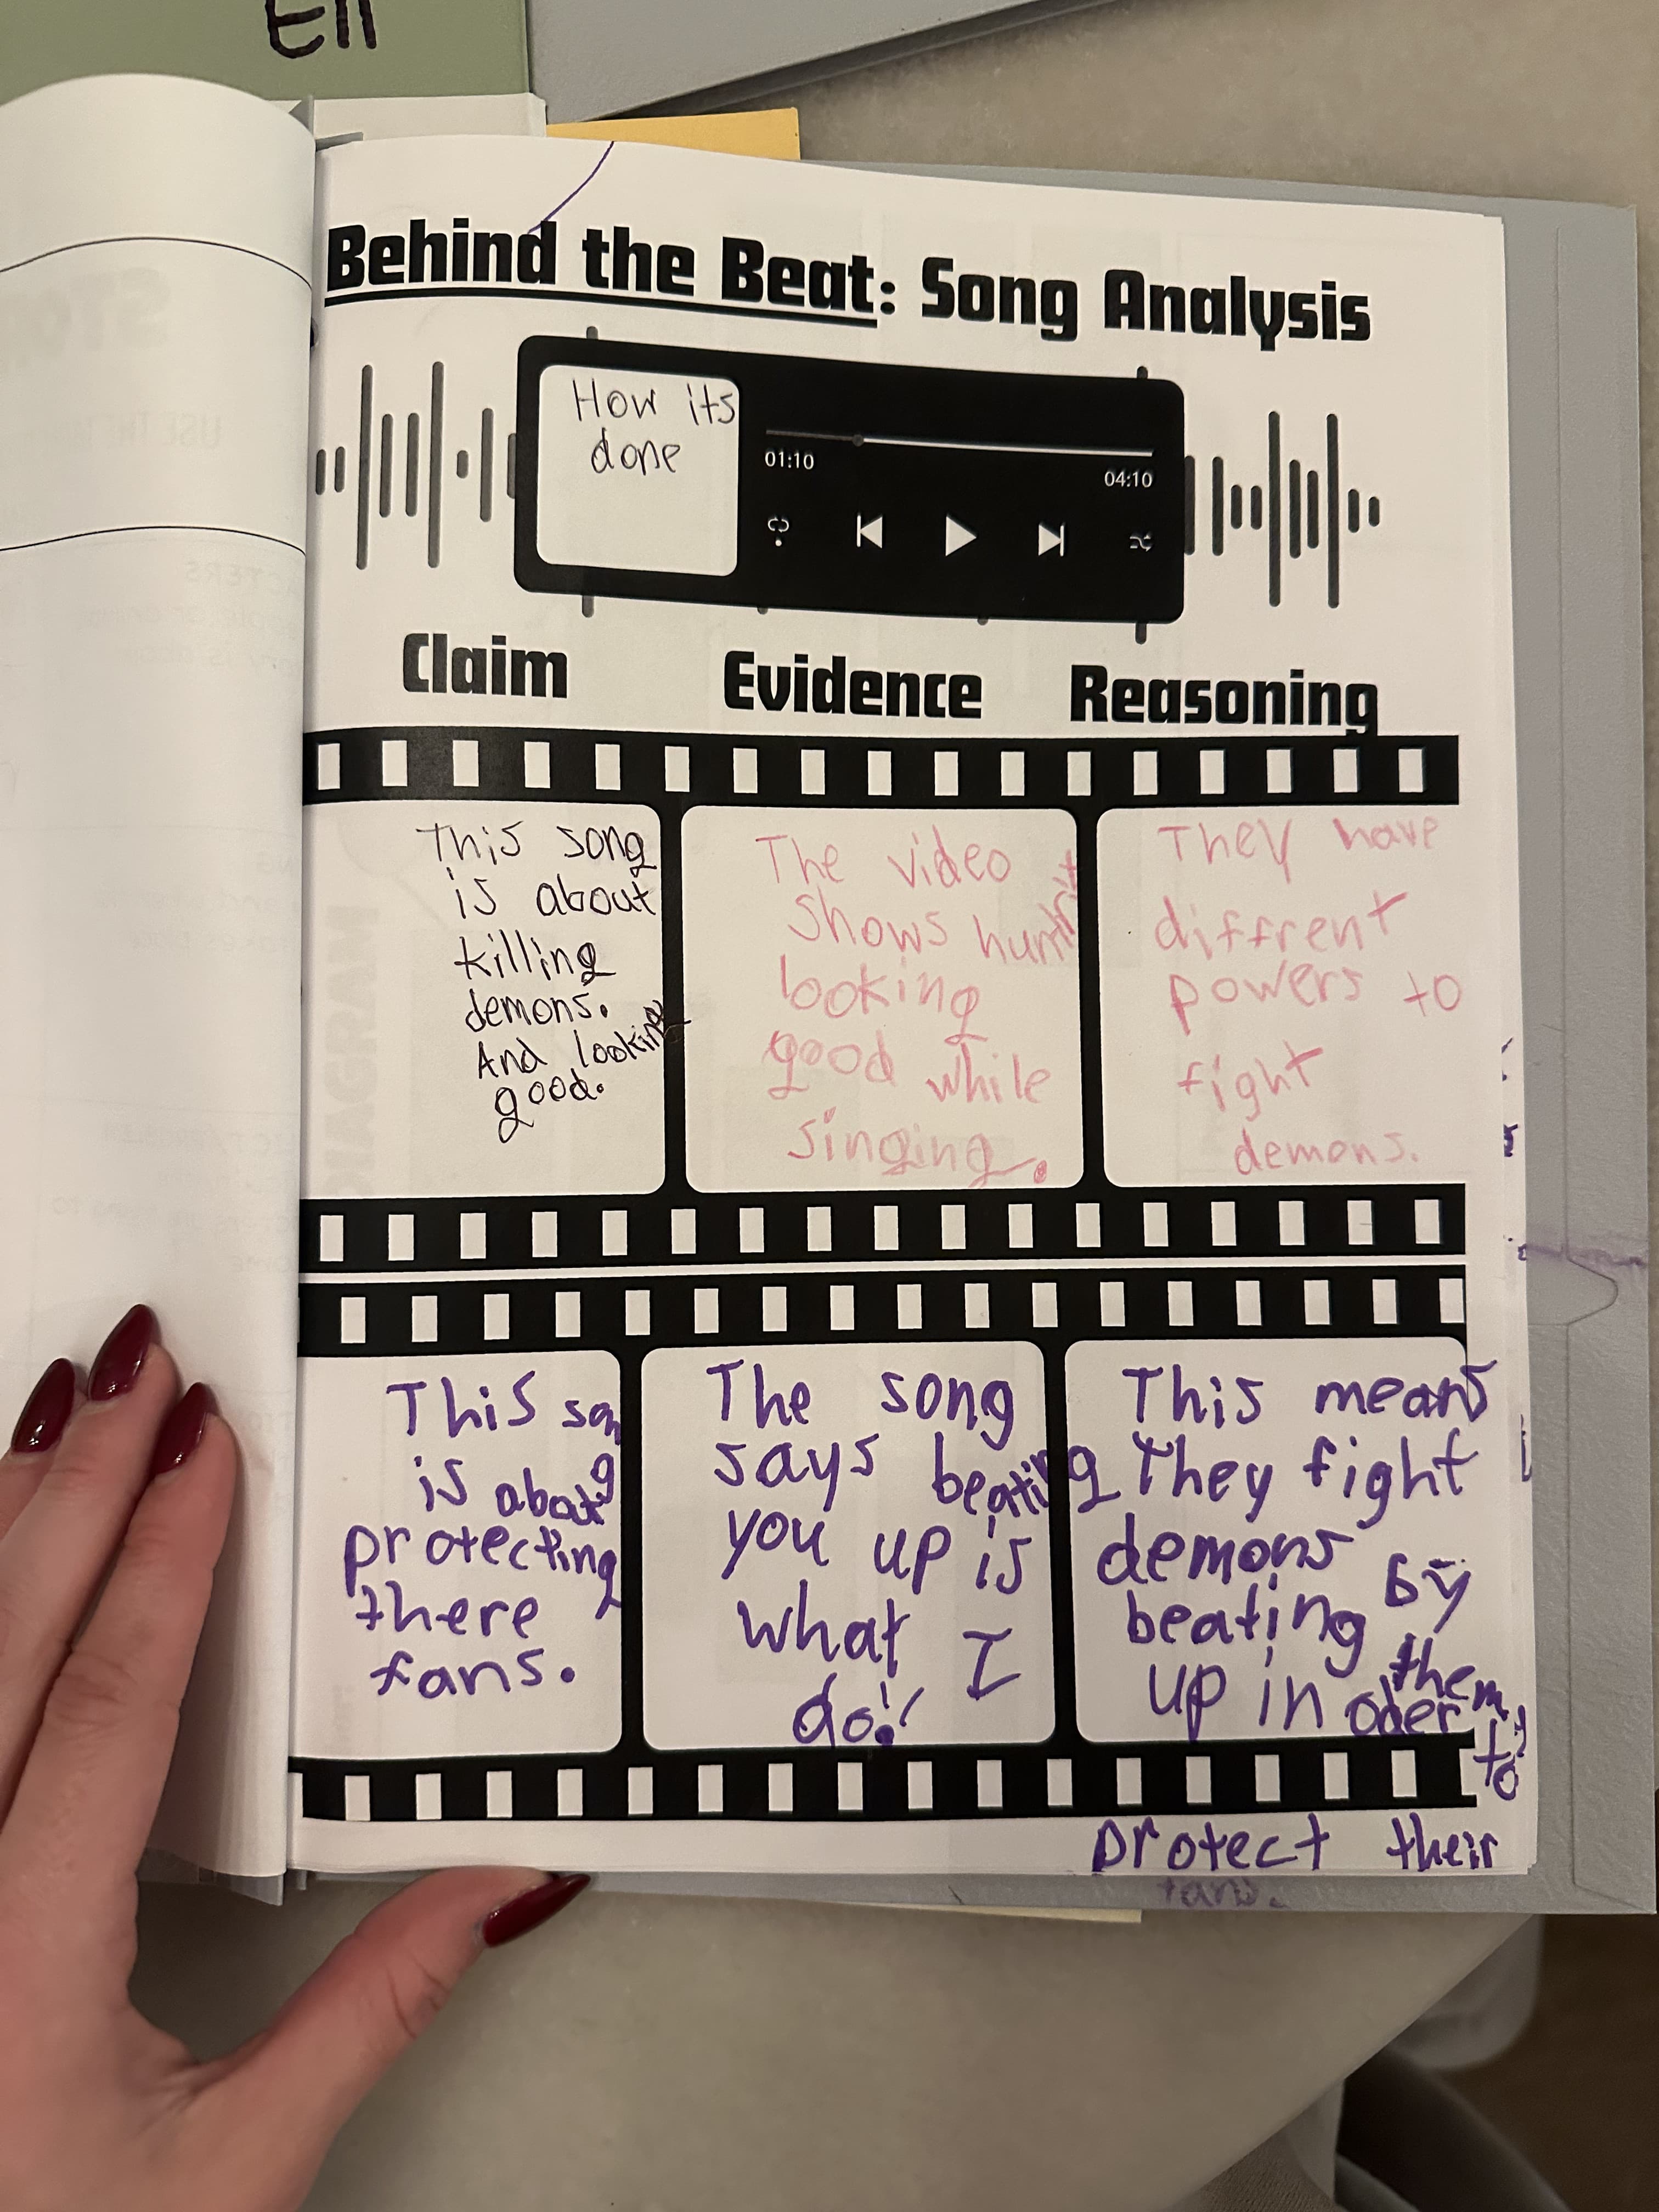 Ell
Behind the Beat: Song Analysis
How its
done
01:10
04:10
Claim
Evidence
Reasoning
This song
is about
killing
demons.
And looking
good.
The video
shows
looking
good while
singing.
They have
diffrent
powers to
fight
demons.
This song
is about
protecting
there
fans.
The song
says beating
you up is
what I
do!
This means
They fight
demons by
beating them
up in oder to
protect their
fans.